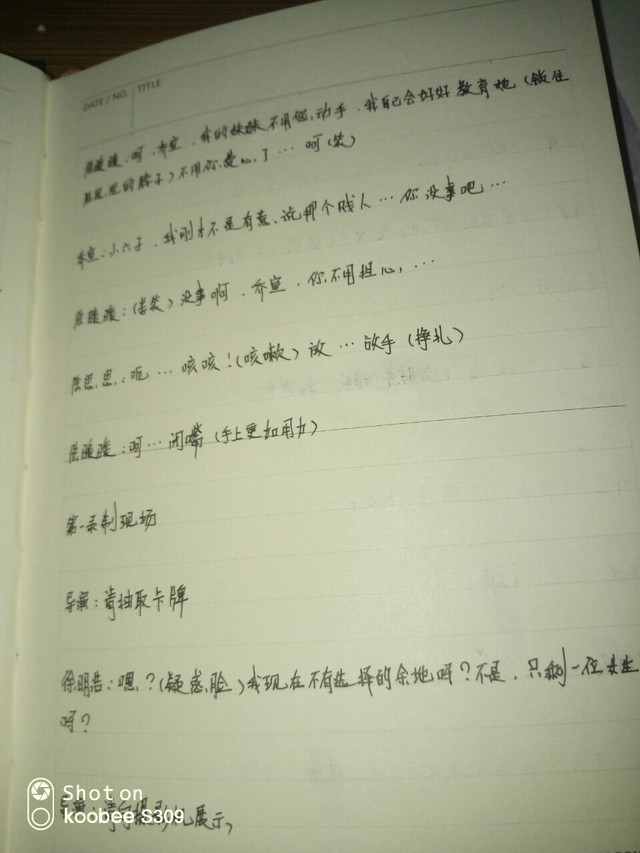 DATE / NO. TITLE
陈暖暖:呵,乔宣,我的妹妹不用您动手,我自己会好好教育她(锁住
陈思思的脖子)不用你费心了…呵(笑)
乔宣:小六子,我刚才不是有意说那个贱人…你没事吧…
陈暖暖:(苦笑)没事啊,乔宣,你不用担心,…
陈思思:呃…咳咳!(咳嗽)放…放手(挣扎)
陈暖暖:呵…闭嘴(手上更加用力)
第一录制现场
导演:请抽取卡牌
徐明浩:嗯?(疑惑脸)我现在不有选择的余地吗?不是,只剩一位女生
吗?
导演:请向摄影机展示,
Shot on
koobee S309